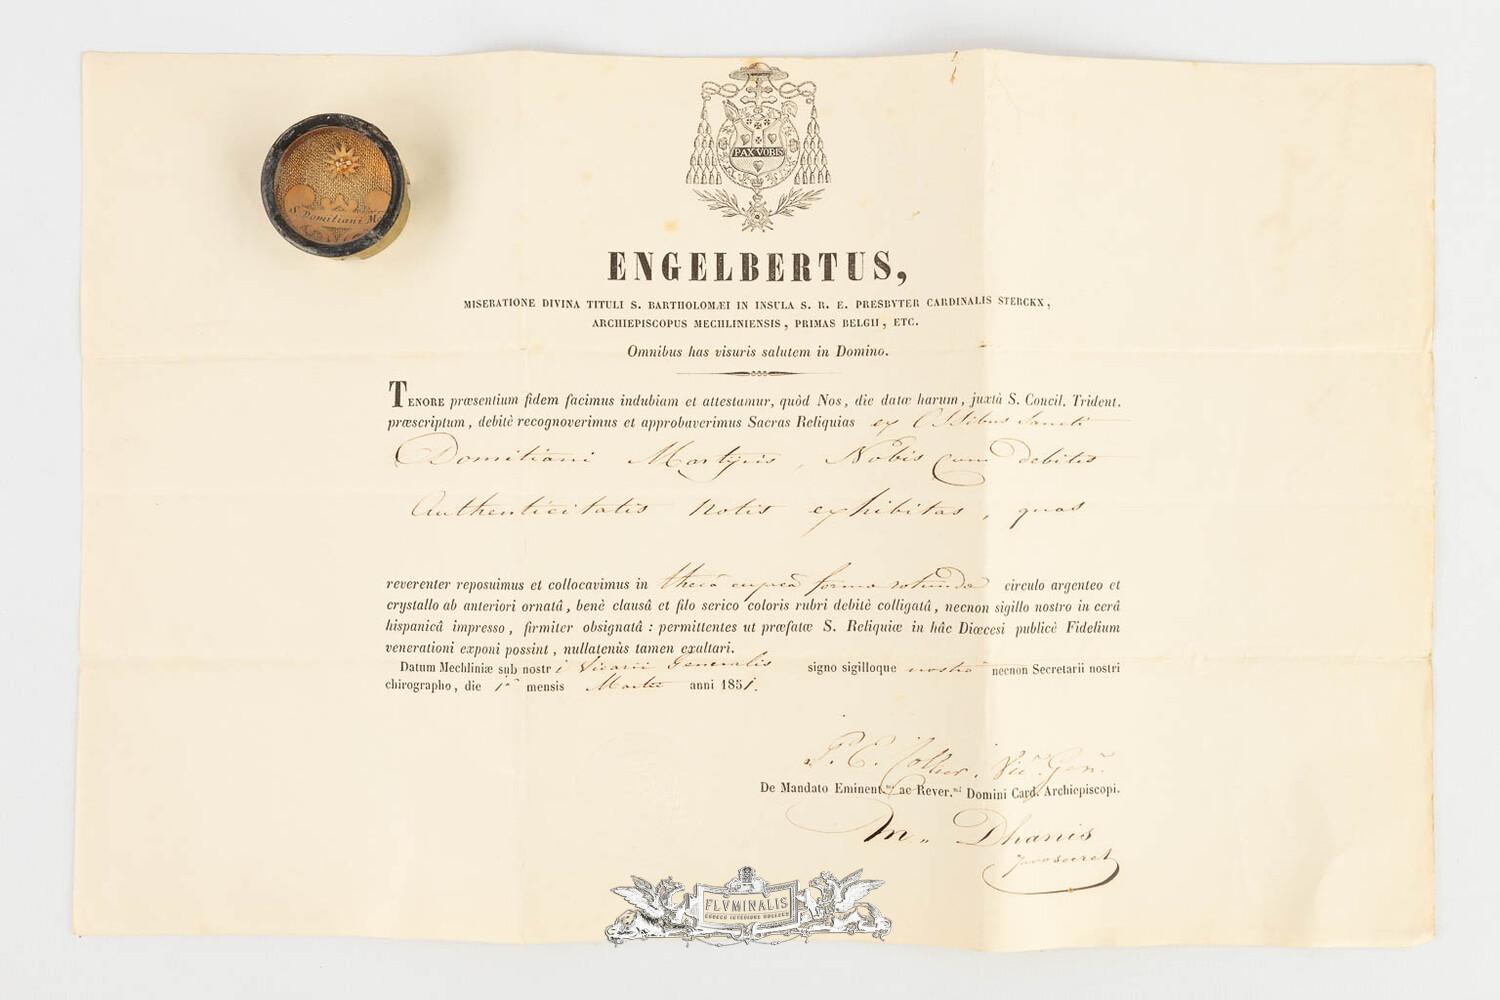 PAX VOBIS
S. Domitiani M.
ENGELBERTUS,
MISERATIONE DIVINA TITULI S. BARTHOLOMÆI IN INSULA S. R. E. PRESBYTER CARDINALIS STERCKX,
ARCHIEPISCOPUS MECHLINIENSIS, PRIMAS BELGII, ETC.
Omnibus has visuris salutem in Domino.
TENORE præsentium fidem facimus indubiam et attestamur, quòd Nos, die datæ harum, juxtà S. Concil. Trident.
præscriptum, debitè recognoverimus et approbaverimus Sacras Reliquias ex Ossibus Sancti
Domitiani Martyris, Nobis cum debitis
Authenticitatis notis exhibitas, quas
reverenter reposuimus et collocavimus in thecâ cupreâ forma rotunda circulo argenteo et
crystallo ab anteriori ornatâ, benè clausâ et filo serico coloris rubri debitè colligatâ, necnon sigillo nostro in cerâ
hispanicâ impresso, firmiter obsignatâ : permittentes ut præfatæ S. Reliquiæ in hâc Diœcesi publicè Fidelium
venerationi exponi possint, nullatenùs tamen exaltari.
Datum Mechliniæ sub nostri Vicarii Generalis signo sigilloque nostro necnon Secretarii nostri
chirographo, die 1ª mensis Martii anni 1851.
P. E. Collier, Vic. Gen.
De Mandato Eminent.mi ac Rever.mi Domini Card. Archiepiscopi.
M. Dhanis
prosecret
FLVMINALIS